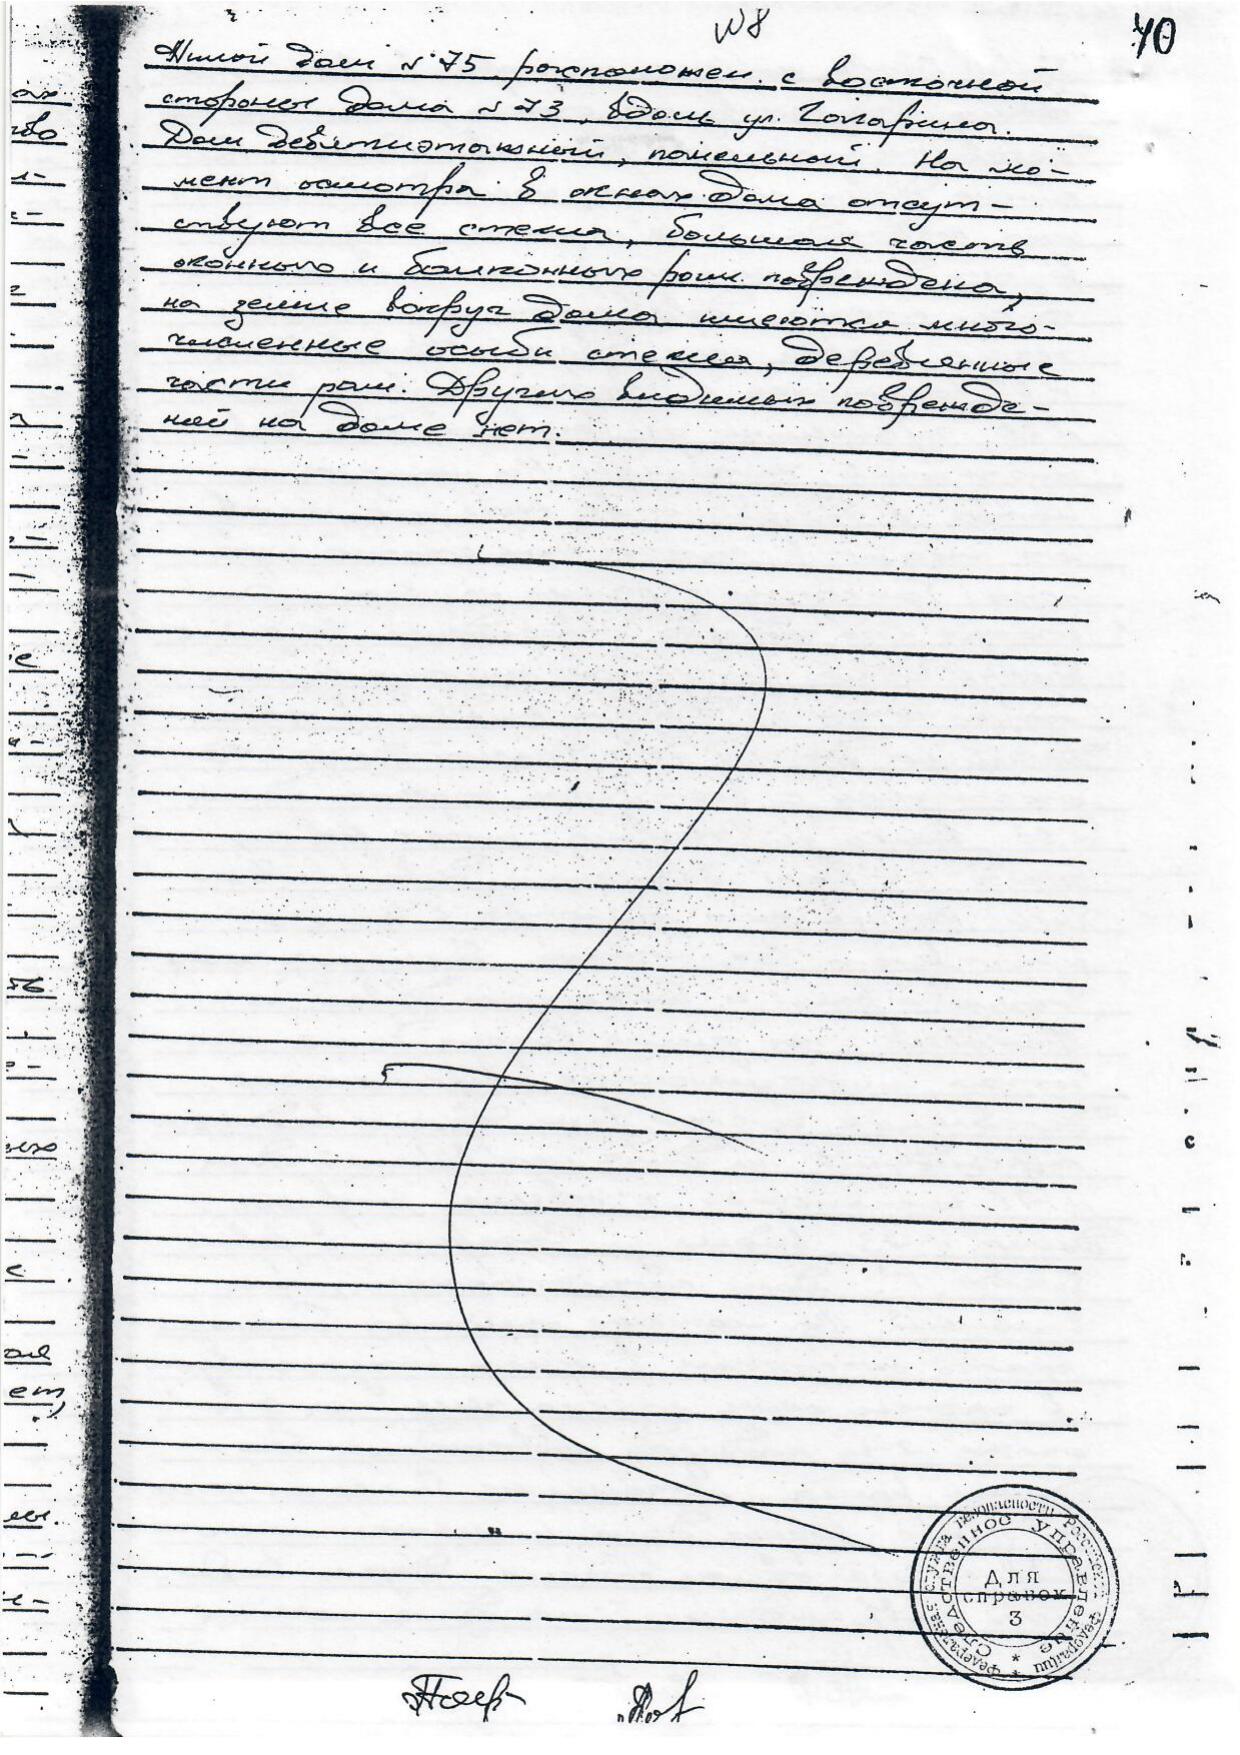 N 8
70
Жилой дом № 75 расположен с восточной
стороны дома № 73, вдоль ул. Гагарина.
Дом девятиэтажный, панельный. На мо-
мент осмотра в окнах дома отсут-
ствуют все стекла, большая часть
оконных и балконных рам повреждена,
на земле вокруг дома имеются много-
численные осыпи стекла, деревянные
части рам. Других видимых поврежде-
ний на доме нет.
Федеральная служба безопасности Российской Федерации
Следственное управление
Для
справок
3